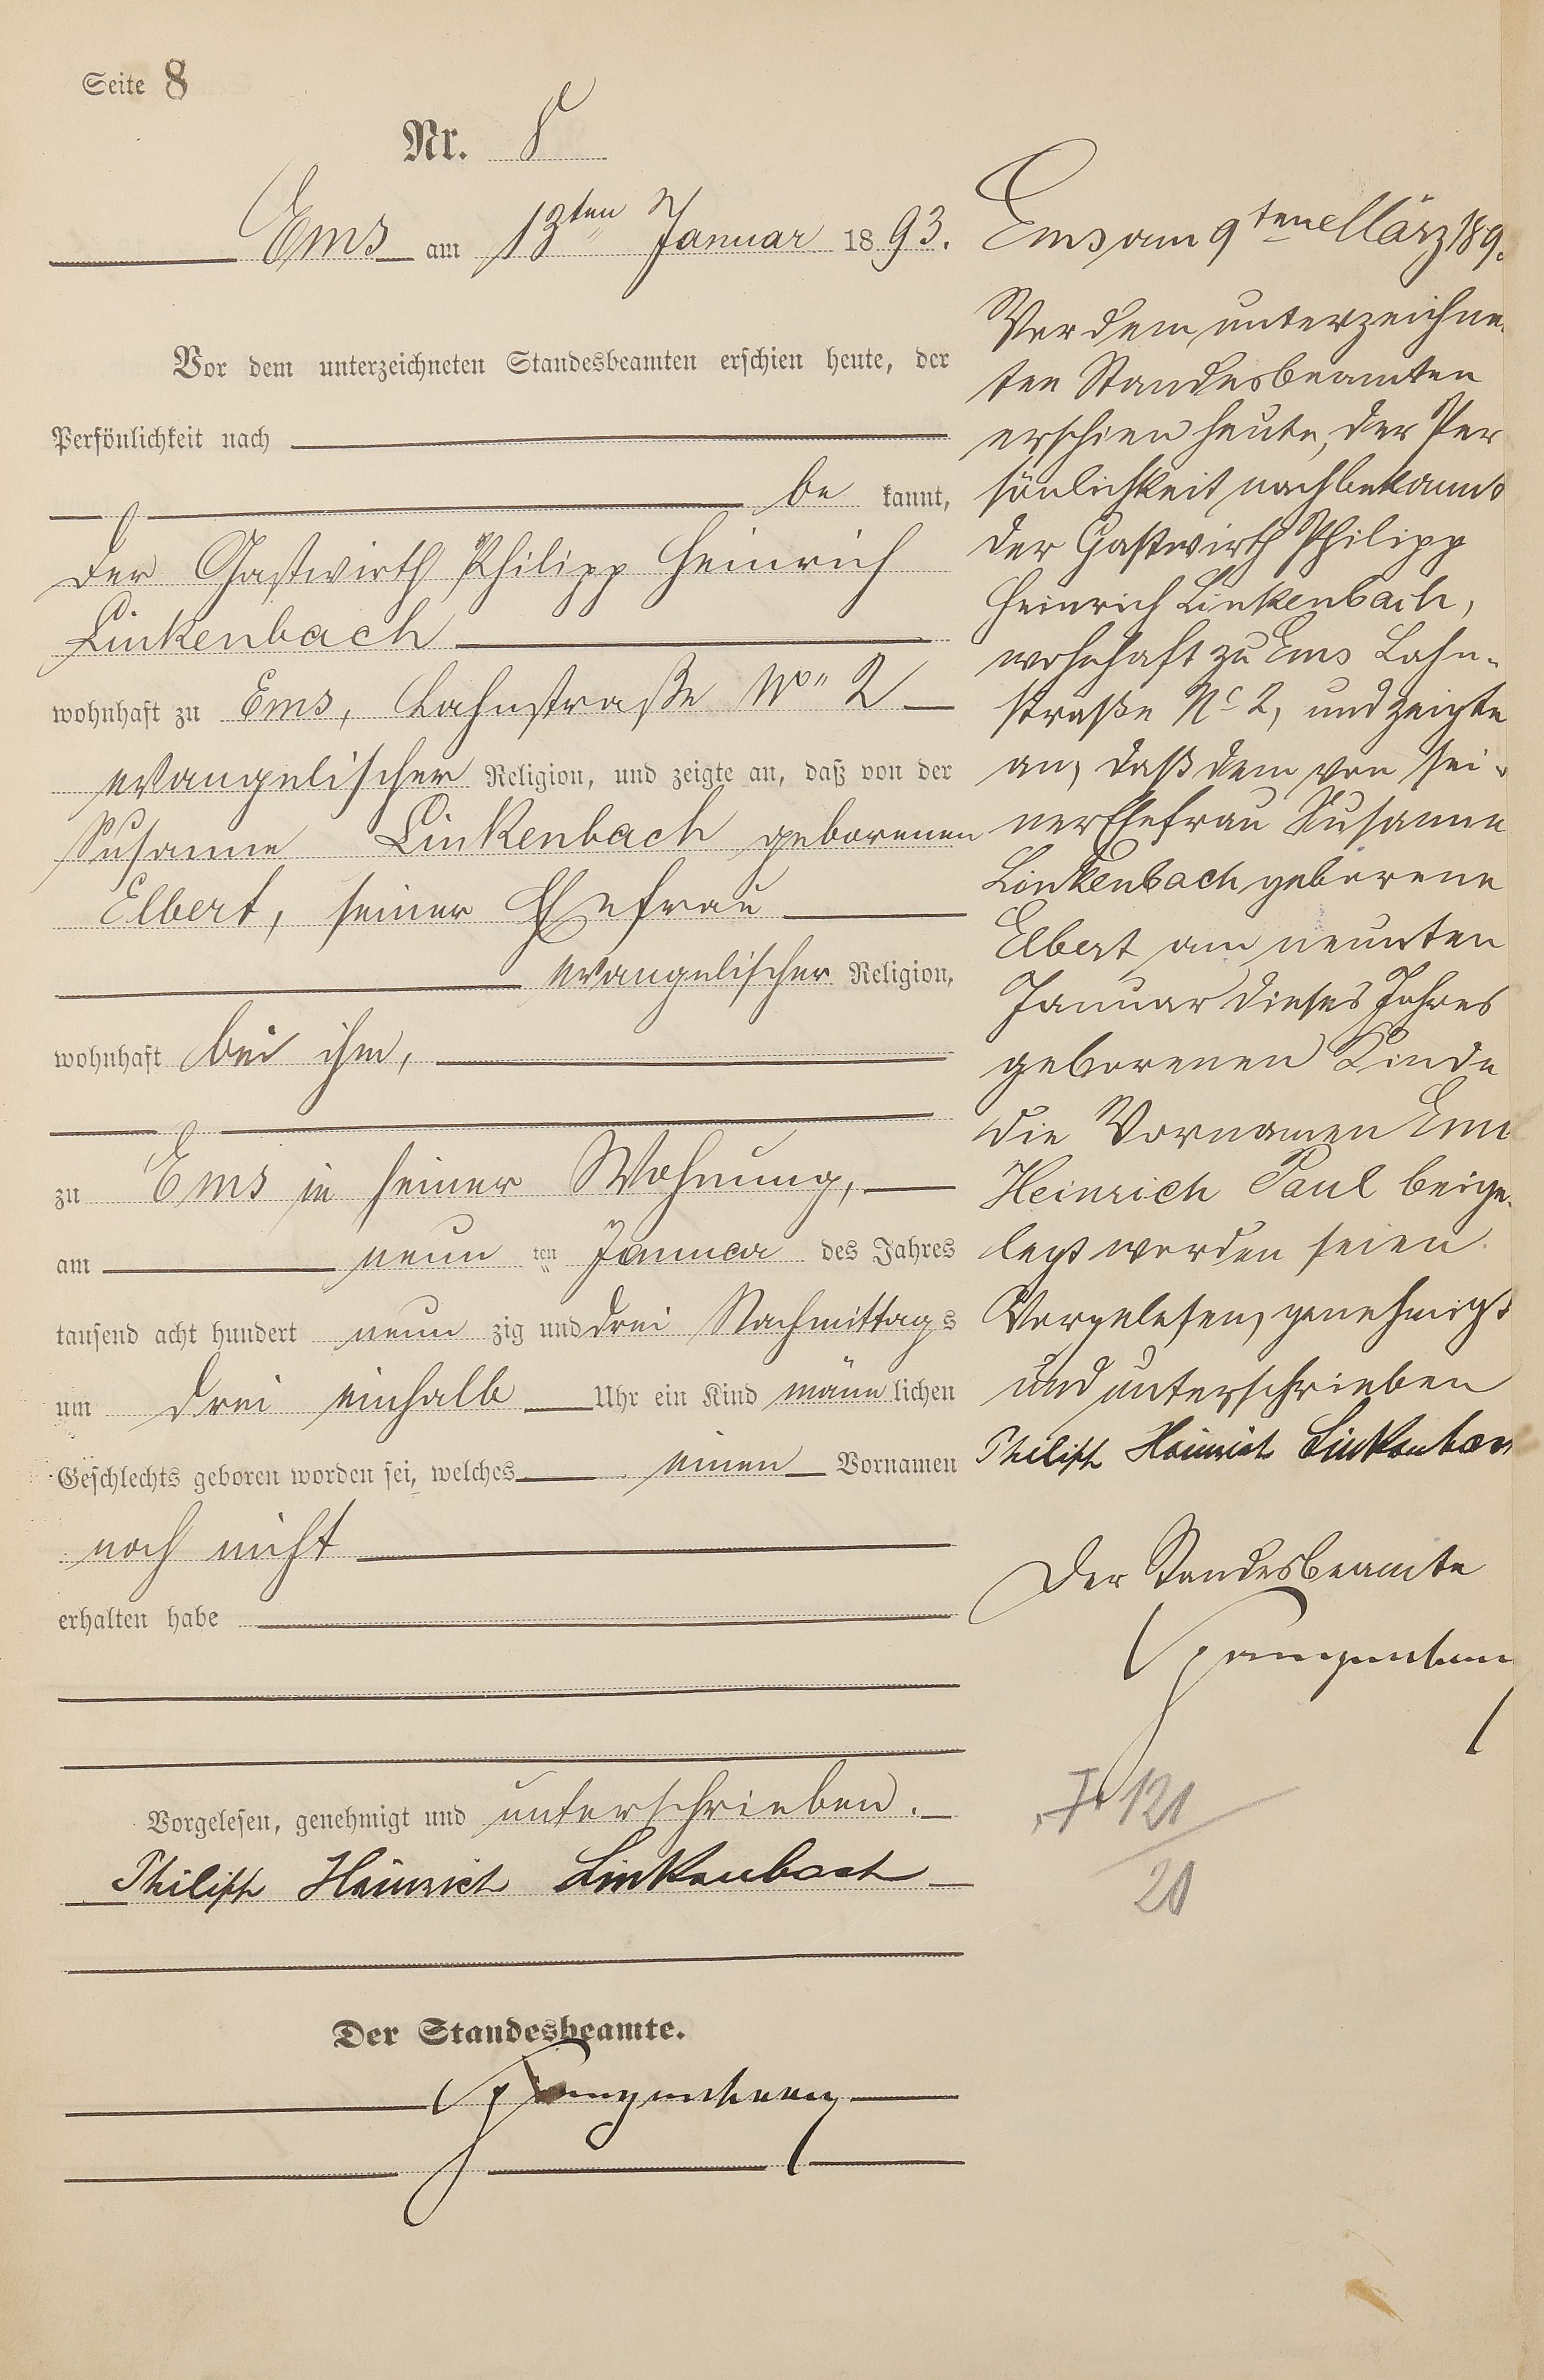 Seite 8
Nr. 8
Ems am 13ten Januar 1893.
Vor dem unterzeichneten Standesbeamten erschien heute, der
Persönlichkeit nach
be kannt,
der Gastwirth Philipp Heinrich
Linkenbach
wohnhaft zu Ems, Lahnstraße No 2
evangelischer Religion, und zeigte an, daß von der
Susanne Linkenbach geborenen
Elbert, seiner Ehefrau
evangelischer Religion,
wohnhaft bei ihm,
zu Ems in seiner Wohnung,
am neun ten Januar des Jahres
tausend acht hundert neun zig und drei Nachmittags
um drei einhalb Uhr ein Kind männlichen
Geschlechts geboren worden sei, welches einen Vornamen
noch nicht
erhalten habe
Vorgelesen, genehmigt und unterschrieben.
Philipp Heinrich Linkenbach
Der Standesbeamte.
Ems am 9ten März 189
Vor dem unterzeichne-
ten Standesbeamten
erschien heute, der Per
sönlichkeit nach bekannt
der Gastwirth Philipp
Heinrich Linkenbach,
wohnhaft zu Ems Lahn-
straße No 2, und zeigte
an, daß dem von sei-
ner Ehefrau Susanne
Linkenbach geborene
Elbert am neunten
Januar dieses Jahres
geborenen Kinde
die Vornamen
Heinrich Paul beige-
legt worden seien.
Vorgelesen, genehmigt
und unterschrieben
Philipp Heinrich Linkenbach
Der Standesbeamte
121
20